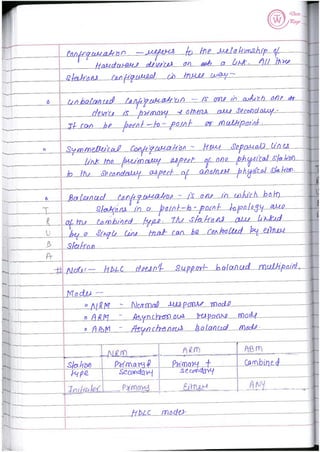 Configuration — refers to the relationship of
Hardware devices on a link. All three
Stations configured in three way —
unbalanced configuration — is one in which one
device is primary & others are secondary.
It can be point-to-point or multipoint.
Symmetrical Configuration - Here separate lines
link the primary aspect of one physical station
to the secondary aspect of another physical station.
Balanced configuration - is one in which both
stations in a point-to-point topology are
of the combined type. The stations are linked
by a single line that can be controlled by either
station
T
R
U
B
A
# Note:— HDLC doesn't support balanced multipoint.
Modes —
NRM - Normal response mode
ARM - Asynchronous response mode
ABM - Asynchronous balanced mode
NRM ARM ABM
Station type Primary & Secondary Primary + Secondary Combined
Initiator Primary Either ANY
HDLC modes